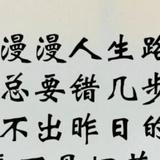 漫漫人生路
总要错几步
不出昨日的